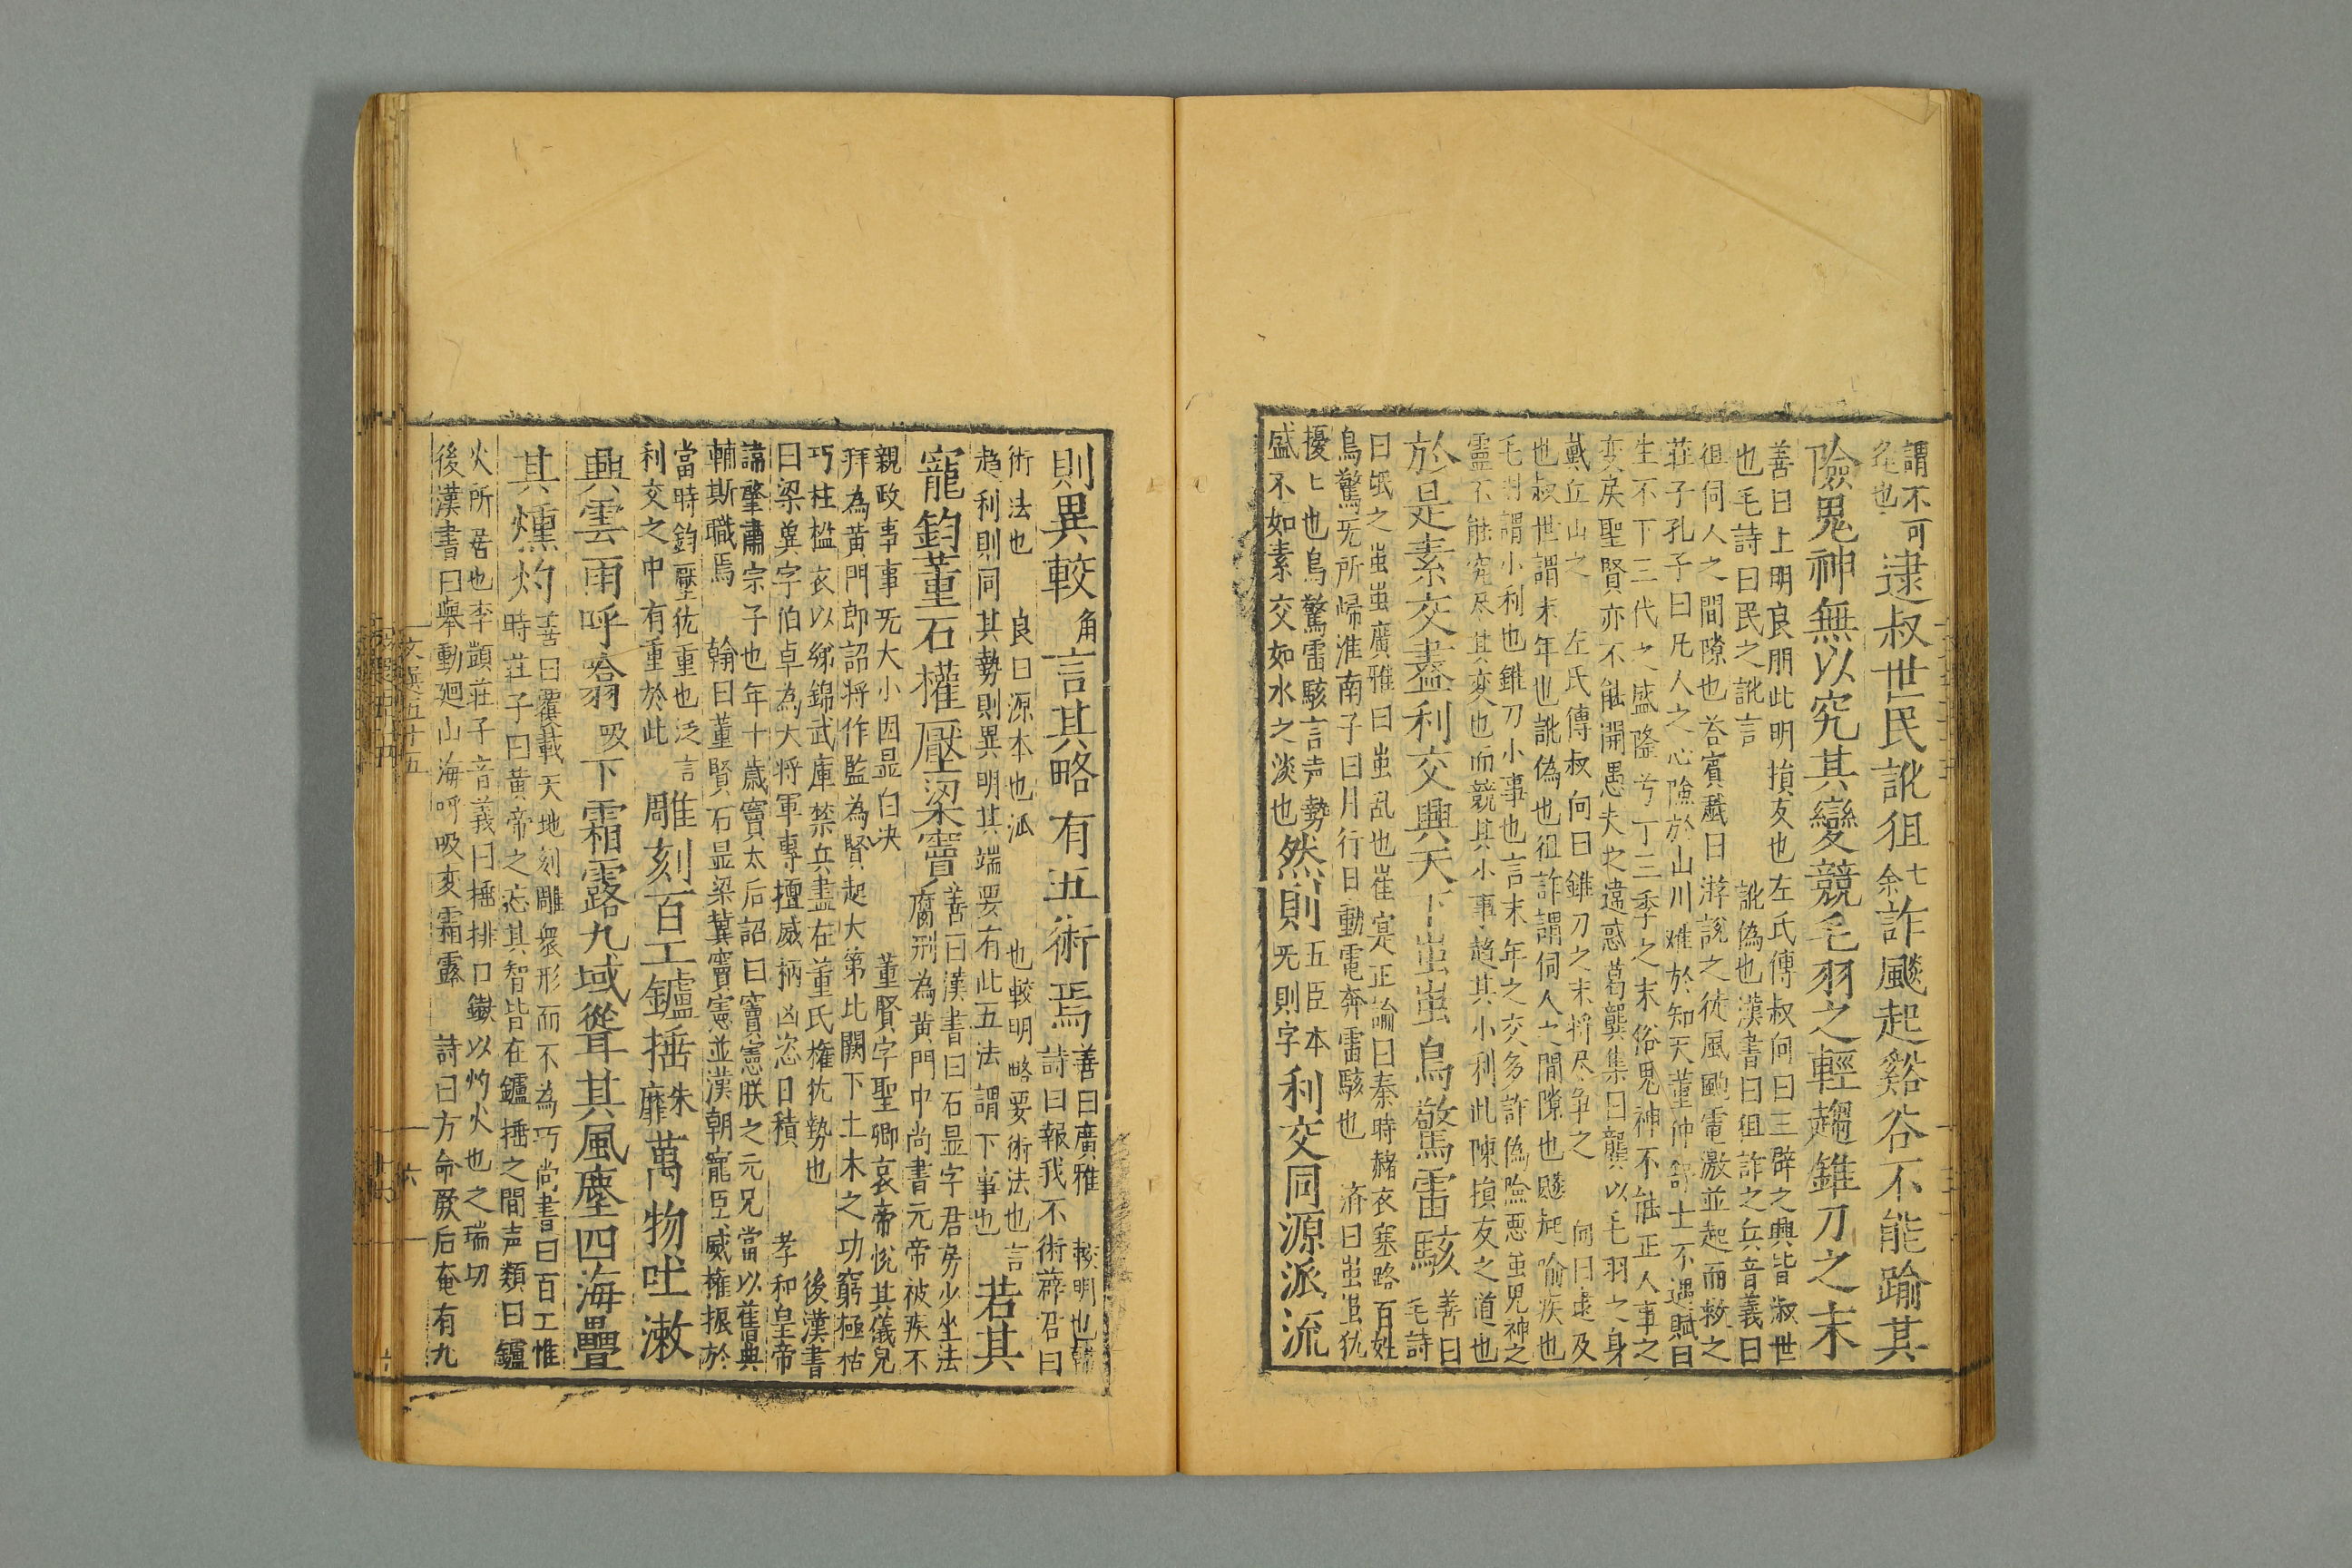 謂不可
逮叔世民訛狙詐颷起谿谷不能踰其
險鬼神無以究其變競毛羽之輕趨錐刀之末
善曰上明良朋此明損友也左氏傳叔向曰三辟之興皆叔世
也毛詩曰民之訛言 訛偽也漢書曰狙詐之兵音義曰
狙伺人之間隙也荅賓戲曰游說之徒風颮電激並起而救之
莊子孔子曰凡人之心險於山川难於知天董仲舒士不遇賦曰
生不丁三代之盛隆兮丁三季之末俗鬼神不能正人事之
变戾聖賢亦不能開愚夫之違惑葛龔集曰龔以毛羽之身
戴丘山之 左氏傳叔向曰錐刀之末将尽争之 向曰逮及
也叔世謂末年也訛偽也狙詐謂伺人之間隙也颷起喻疾也
毛羽謂小利也錐刀小事也言末年之交多詐偽險惡虽鬼神之
靈不能究尽其变也而競其小事趨其小利此陳損友之道也
於是素交盡利交興天下蚩蚩鳥驚雷駭 善曰毛詩
曰氓之蚩蚩廣雅曰蚩乱也崔寔正論曰秦時赭衣塞路百姓
鳥驚无所歸淮南子曰月行日動電奔雷駭也 濟曰蚩蚩犹
擾也鳥驚雷駭言声勢
盛不如素交如水之淡也 然則 五臣本无則字 利交同源派流
則異較 角 言其略有五術焉 善曰廣雅 較明也韓
詩曰報我不術薛君曰
術法也 良曰源本也派 也較明略要術法也言
趋利則同其勢則異明其端要有此五法謂下事也 若其
寵鈞董石權壓梁竇 善曰漢書曰石显字君房少坐法
腐刑為黄門中尚書元帝被疾不
親政事事无大小因显白决 董賢字聖卿哀帝悅其儀皃
拜為黄門郎詔将作監為賢起大第北闕下土木之功窮極
巧柱檻衣以绨錦武庫禁兵盡在董氏權抗勢也 後漢書
曰梁兾字伯卓為大将軍專擅威柄凶恣日積 孝和皇帝
諱肇肅宗子也年十歲竇太后詔曰竇憲朕之元兄當以舊典
輔斯職焉 翰曰董賢石显梁冀竇憲並漢朝寵臣威權振於
當時鈞壓犹重也泛言
利交之中有重於此 雕刻百工鑪捶 朱靡 萬物吐漱
興雲雨呼噏 吸 下霜露九域聳其風塵四海疊
其燻灼 善曰覆載天地刻雕衆形而不為巧尚書曰百工惟
時莊子曰黄帝之忘其智皆在鑪捶之間声類曰鑪
火所居也李顗莊子音義曰捶排口鐵以灼火也之瑞切
後漢書曰舉動廻山海呼吸变霜露 詩曰方命厥后奄有九
文選五十五
六